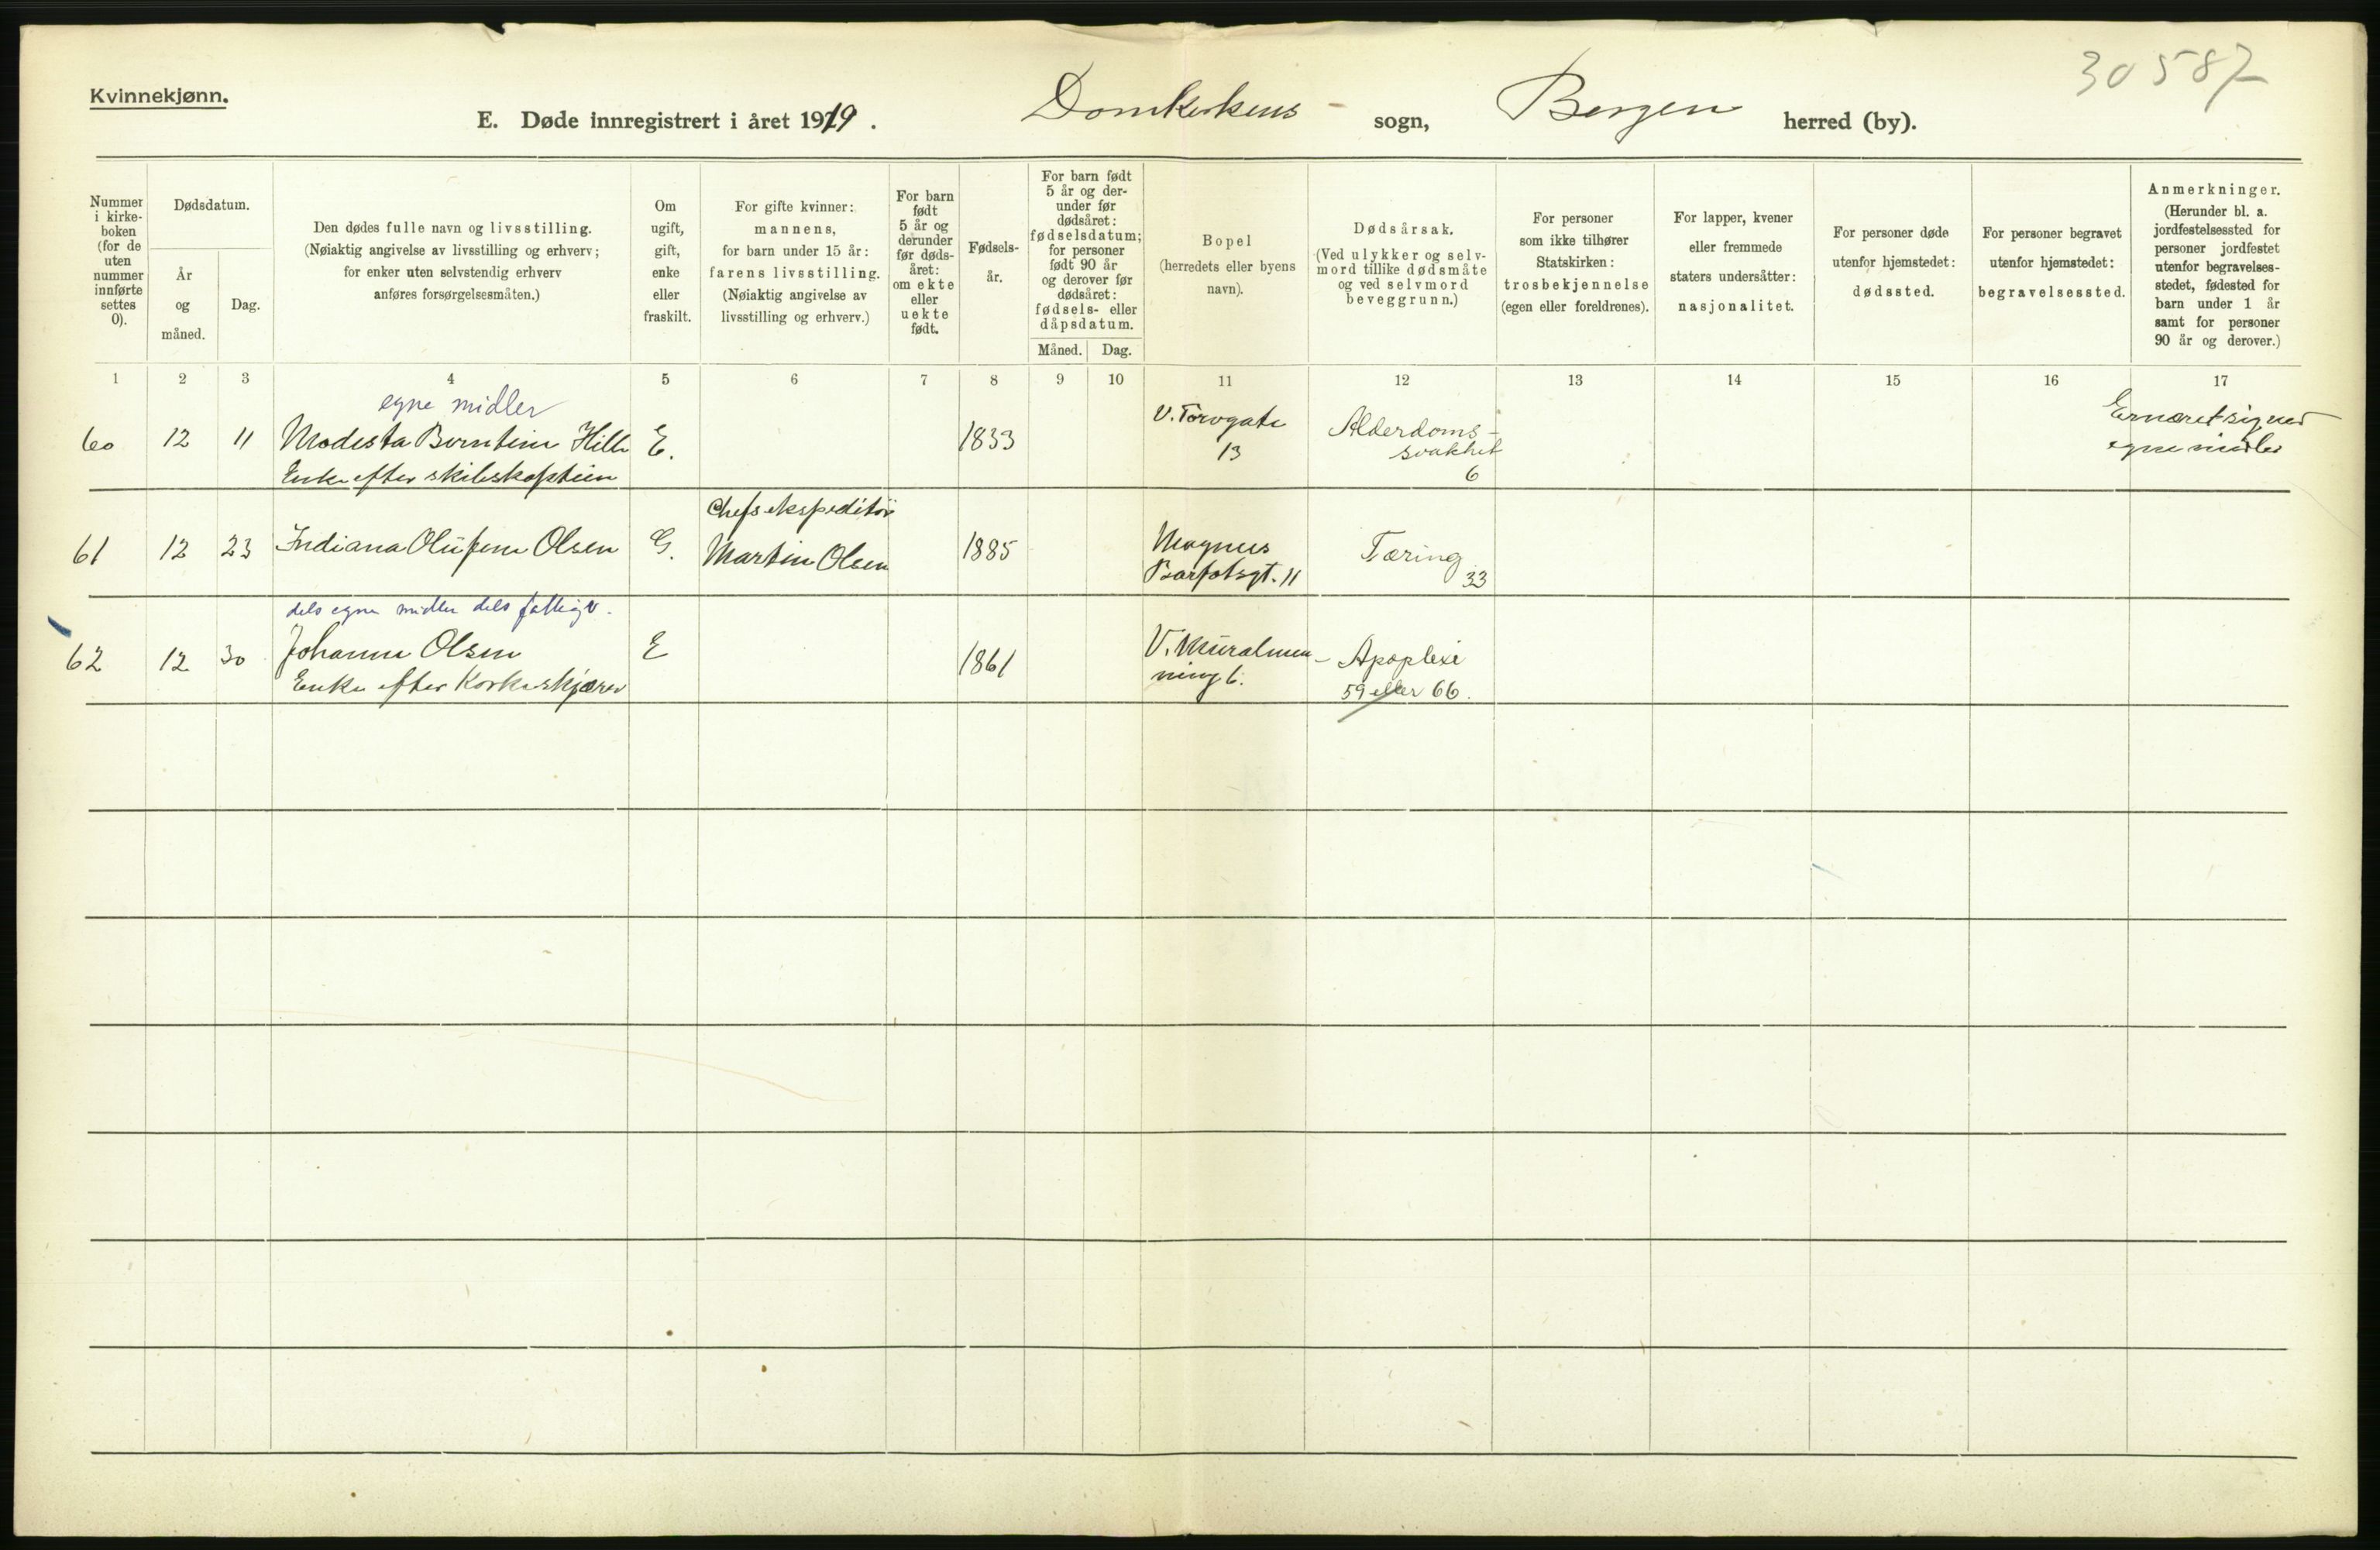 Kvinnekjønn.
30587
E. Døde innregistrert i året 1919. Domkirkens - sogn, Bergen herred (by).
Nummer i kirke-boken (for de uten nummer innførte settes 0).
Dødsdatum.
År og måned.
Dag.
Den dødes fulle navn og livsstilling.
(Nøiaktig angivelse av livsstilling og erhverv;
for enker uten selvstendig erhverv
anføres forsørgelsesmåten.)
Om ugift, gift, enke eller fraskilt.
For gifte kvinner:
mannens,
for barn under 15 år:
farens livsstilling.
(Nøiaktig angivelse av
livsstilling og erhverv.)
For barn født 5 år og derunder før døds-året: om ekte eller uekte født.
Fødsels-år.
For barn født
5 år og der-
under før
dødsåret:
fødselsdatum;
for personer
født 90 år
og derover før
dødsåret:
fødsels- eller
dåpsdatum.
Måned. Dag.
Bopel
(herredets eller byens
navn).
Dødsårsak.
(Ved ulykker og selv-
mord tillike dødsmåte
og ved selvmord
beveggrunn.)
For personer
som ikke tilhører
Statskirken:
trosbekjennelse
(egen eller foreldrenes).
For lapper, kvener
eller fremmede
staters undersåtter:
nasjonalitet.
For personer døde
utenfor hjemstedet:
dødssted.
For personer begravet
utenfor hjemstedet:
begravelsessted.
Anmerkninger.
(Herunder bl. a.
jordfestelsessted for
personer jordfestet
utenfor begravelses-
stedet, fødested for
barn under 1 år
samt for personer
90 år og derover.)
1 2 3 4 5 6 7 8 9 10 11 12 13 14 15 16 17
egne midler
60 12 11 Modesta Berntine Hille E. 1833 V. Torvgate 13 Alderdoms-svakhet 6 Ernæret sig ved egne midler
Enke efter skibskaptein
Chefsekspeditør
61 12 23 Indiana Olufine Olsen G. Martin Olsen 1885 Magnus Barfotsgt. 11 Tæring 33
dels egne midler dels fattigv.
62 12 30 Johanne Olsen E 1861 V. Muralmen-ning 6. Apoplexi
Enke efter Korkeskjærer 59 eller 66.